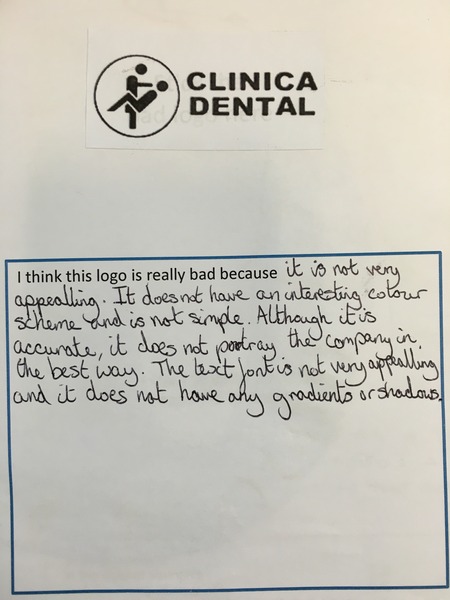 CLINICA
DENTAL
I think this logo is really bad because it is not very
appealling. It does not have an interesting colour
scheme and is not simple. Although it is
accurate, it does not potray the company in
the best way. The text font is not very appealling
and it does not have any gradients or shadows.